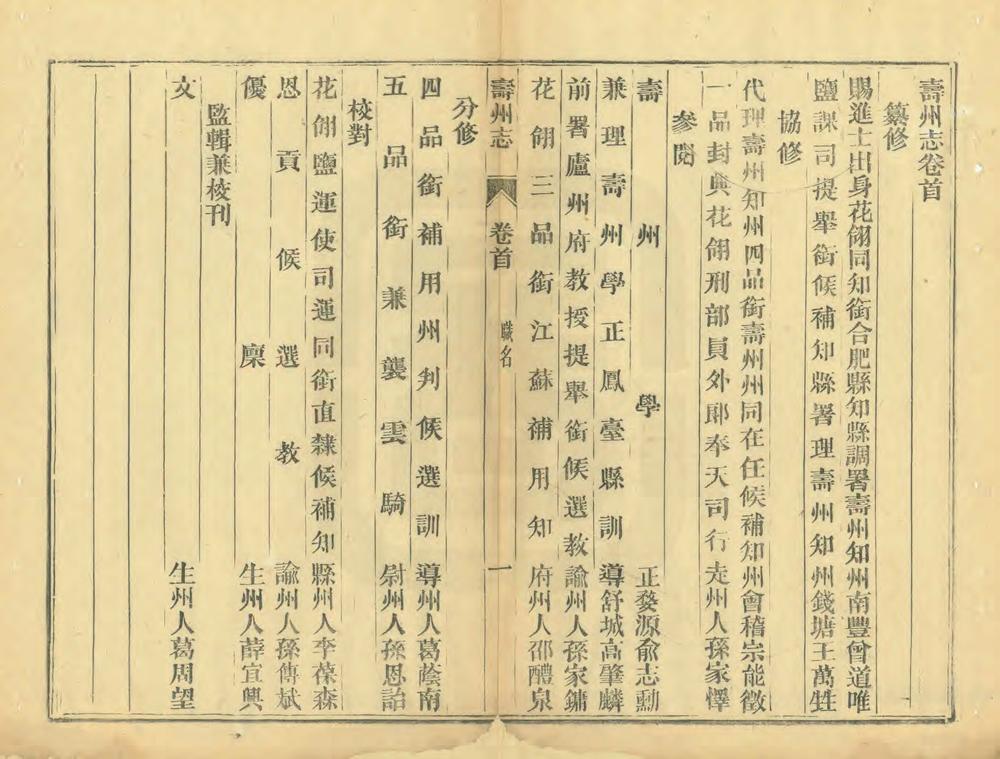 壽州志卷首
纂修
賜進士出身花翎同知銜合肥縣知縣調署壽州知州南豐曾道唯
鹽課司提舉銜候補知縣署理壽州知州錢塘王萬甡
協修
代理壽州知州四品銜壽州州同在任候補知州會稽宗能徵
一品封典花翎刑部員外郎奉天司行走州人孫家懌
參閱
壽州學正婺源俞志勳
兼理壽州學正鳳臺縣訓導舒城高肇麟
前署廬州府教授提舉銜候選教諭州人孫家鏞
花翎三品銜江蘇補用知府州人邵醴泉
壽州志 卷首 職名 一
分修
四品銜補用州判候選訓導州人葛蔭南
五品銜兼襲雲騎尉州人孫恩詒
校對
花翎鹽運使司運同銜直隸候補知縣州人李葆森
恩貢候選教諭州人孫傳斌
優廩生州人薛宜興
監輯兼校刊
文生州人葛周望